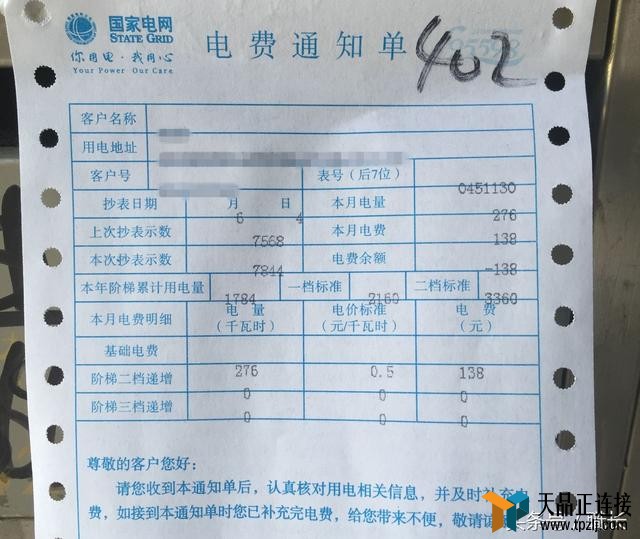 国家电网
STATE GRID
你用电·我用心
Your Power Our Care
电费通知单
95598
402
客户名称
用电地址
客户号 表号（后7位） 0451130
抄表日期 6 月 4 日 本月电量 276
上次抄表示数 7568 本月电费 138
本次抄表示数 7844 电费余额 -138
本年阶梯累计用电量 1784 一档标准 2160 二档标准 3360
本月电费明细 电量（千瓦时） 电价标准（元/千瓦时） 电费（元）
基础电费 276 0.5 138
阶梯二档递增 0 0 0
阶梯三档递增 0 0 0
尊敬的客户您好：
请您收到本通知单后，认真核对用电相关信息，并及时补充电
费，如接到本通知单时您已补充完电费，给您带来不便，敬请谅
天品正连接
www.tpzlj.com